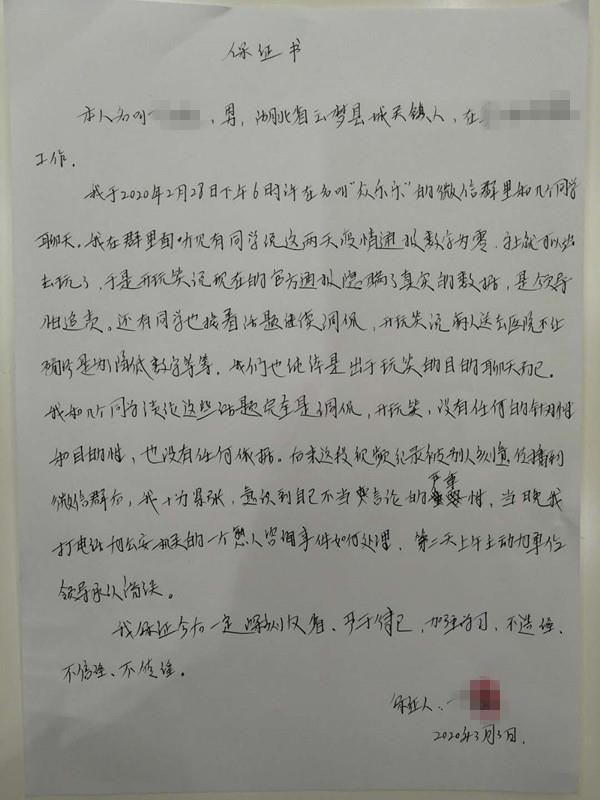 保证书
本人名叫 ，男，湖北省云梦县城关镇人，在
工作。
我于2020年2月28日下午6时许在名叫“众乐乐”的微信群里和几个同学
聊天。我在群里面听见有同学说这两天疫情通报数字为零，马上就可以出
去玩了，于是开玩笑说现在的官方通报隐瞒了真实的数据，是领导
怕追责。还有同学也接着话题继续调侃，开玩笑说病人送去医院不让
确诊是为降低数字等等。我们也纯粹是出于玩笑的目的聊天而已。
我和几个同学谈论这些话题完全是调侃，开玩笑，没有任何的针对性
和目的性，也没有任何依据。后来这段视频纪录被别人刻意传播到
微信群后，我十分紧张，意识到自己不当言论的严重性，当晚我
打电话切公安机关的一个熟人咨询事件如何处理，第二天上午主动向单位
领导承认消误。
我保证今后一定深刻反省、严于律己，加强学习，不造谣、
不信谣、不传谣。
保证人：
2020年3月3日.